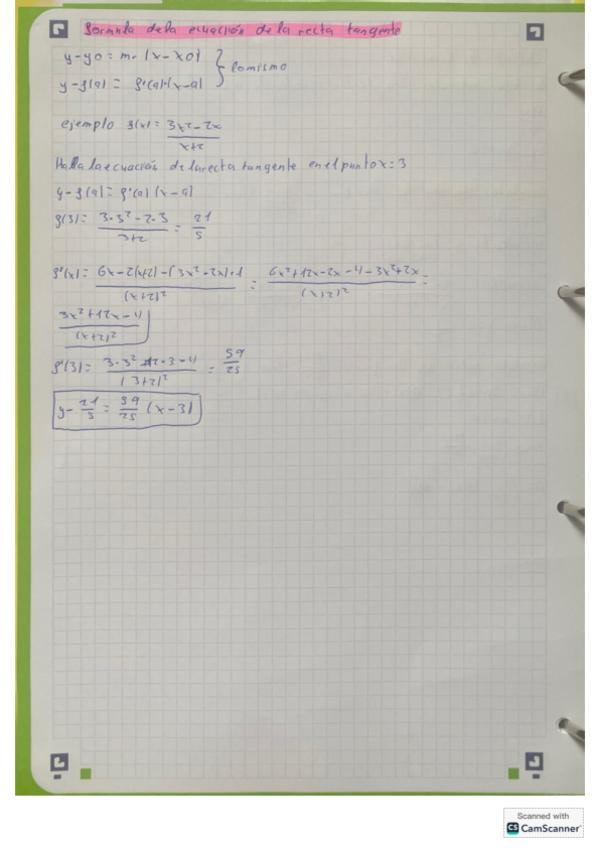 Formula de la ecuación de la recta tangente
y-y0 = m·(x-x0)
y-f(a) = f'(a)·(x-a)
} lo mismo
ejemplo f(x) = 3x²-2x / x+2
Halla la ecuación de la recta tangente en el punto x=3
y-f(a) = f'(a)(x-a)
f(3) = 3·3²-2·3 / 3+2 = 21/5
f'(x) = 6x-2(x+2)-(3x²-2x)·1 / (x+2)² = 6x²+12x-2x-4-3x²+2x / (x+2)² =
3x²+12x-4 / (x+2)²
f'(3) = 3·3²+12·3-4 / (3+2)² = 59/25
y-21/5 = 59/25 (x-3)
Scanned with
CS CamScanner